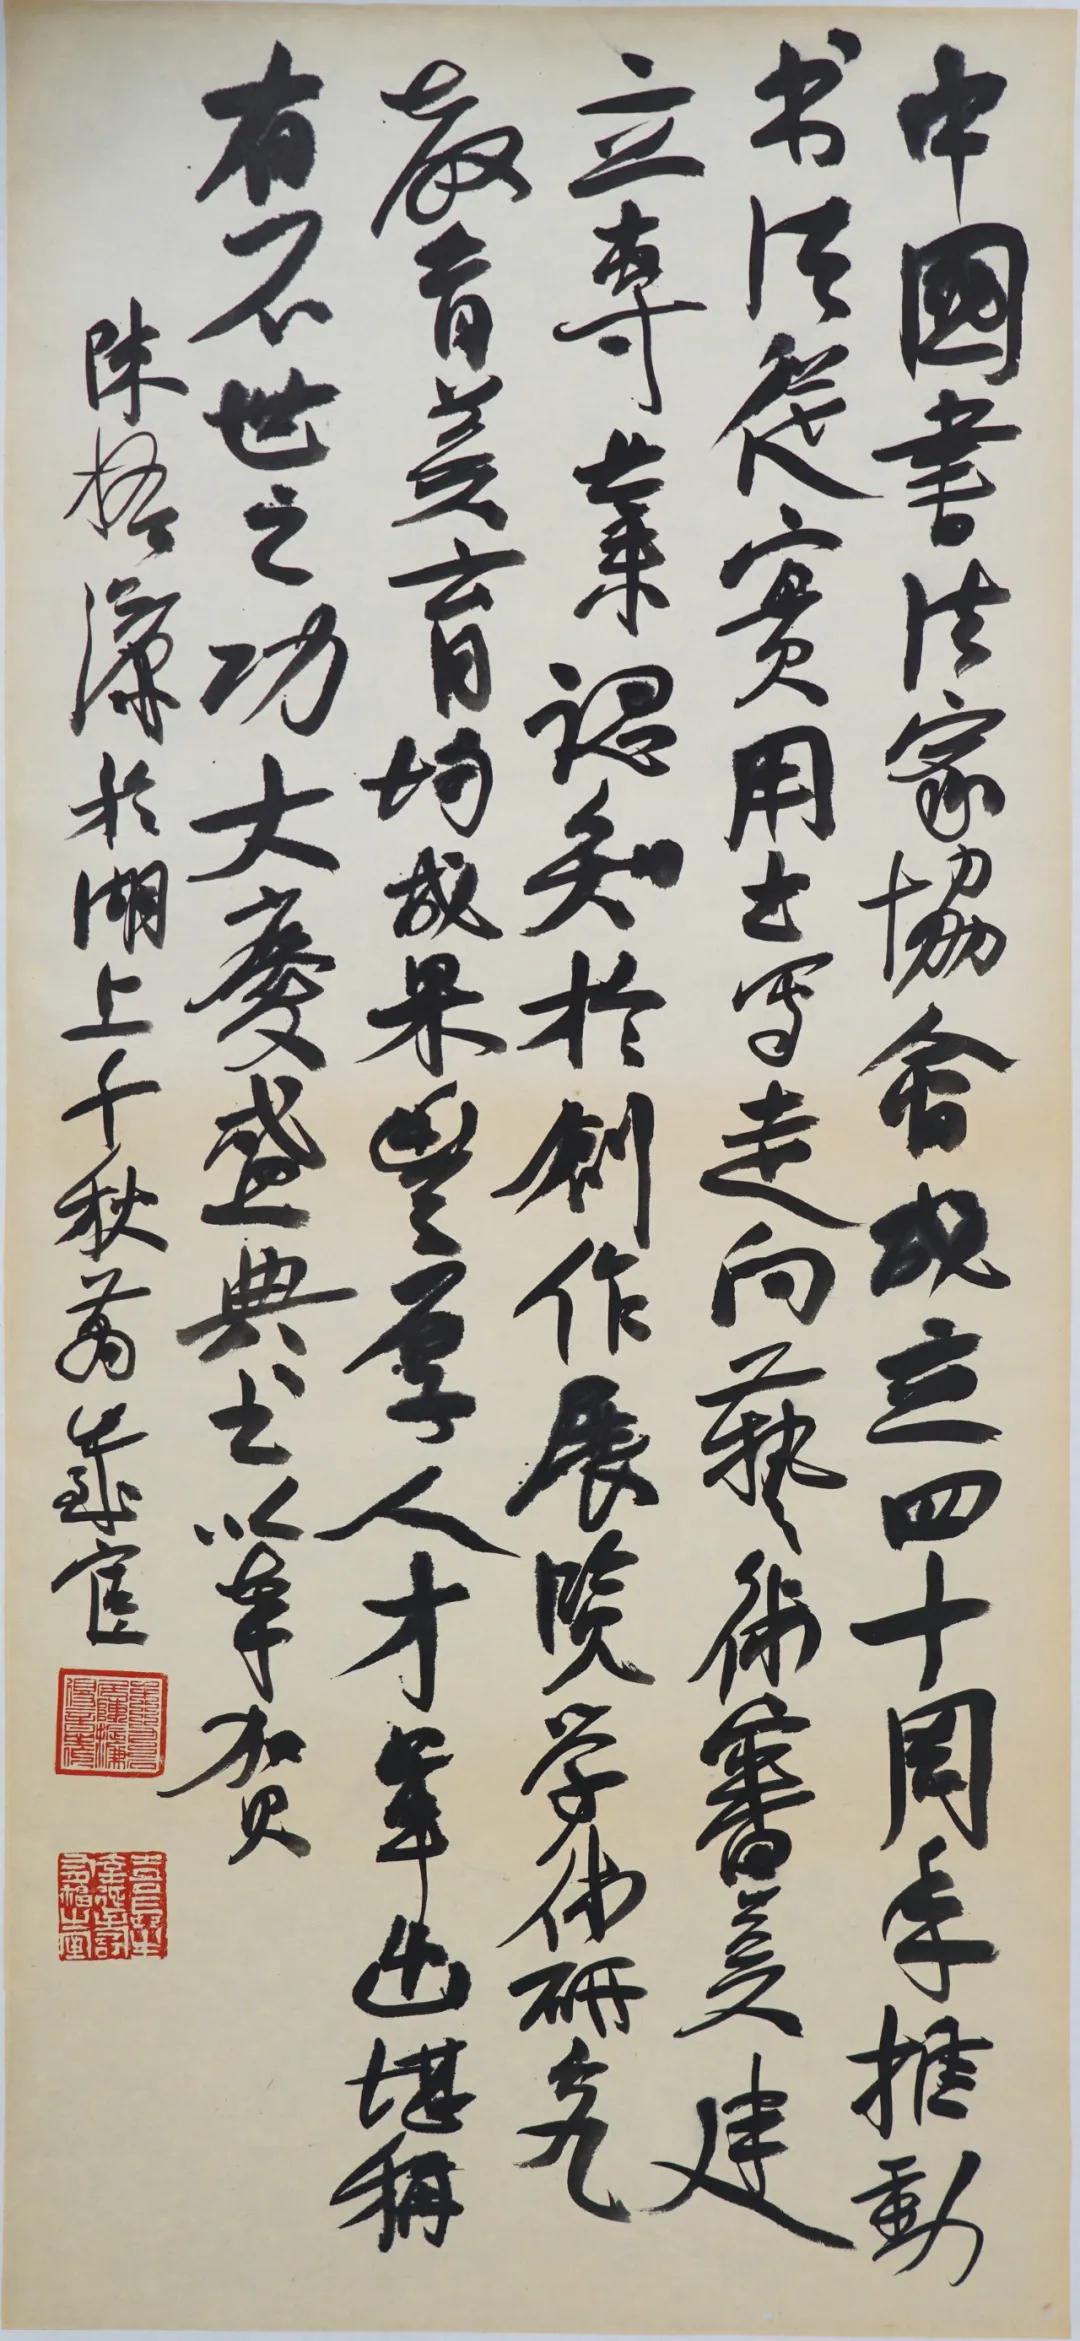 中國書法家協會成立四十周年推動
书法從實用书寫走向藝術審美建
立專業認知於創作展覽学術研究
教育美育均成果豐厚人才輩出堪稱
有不世之功大慶盛典书以奉賀
陳振濂於湖上千秋萬歲宦